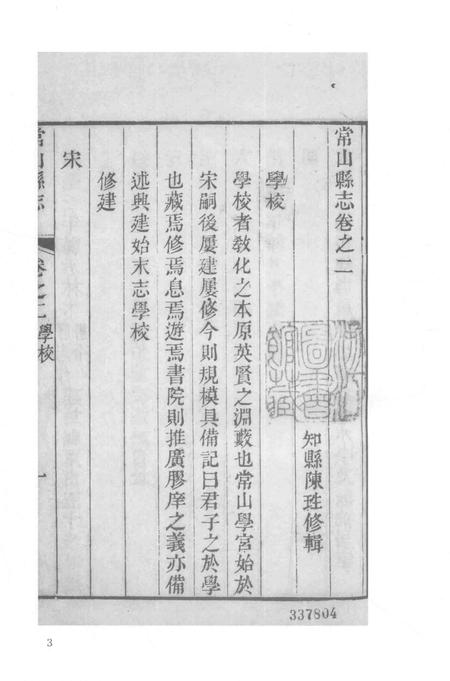 常山縣志卷之二
知縣陳珄修輯
學校
學校者敎化之本原英賢之淵藪也常山學宮始於
宋嗣後屢建屢修今則規模具備記曰君子之於學
也藏焉修焉息焉遊焉書院則推廣膠庠之義亦備
述興建始末志學校
修建
宋
常山縣志
卷之二 學校
一
337804
3